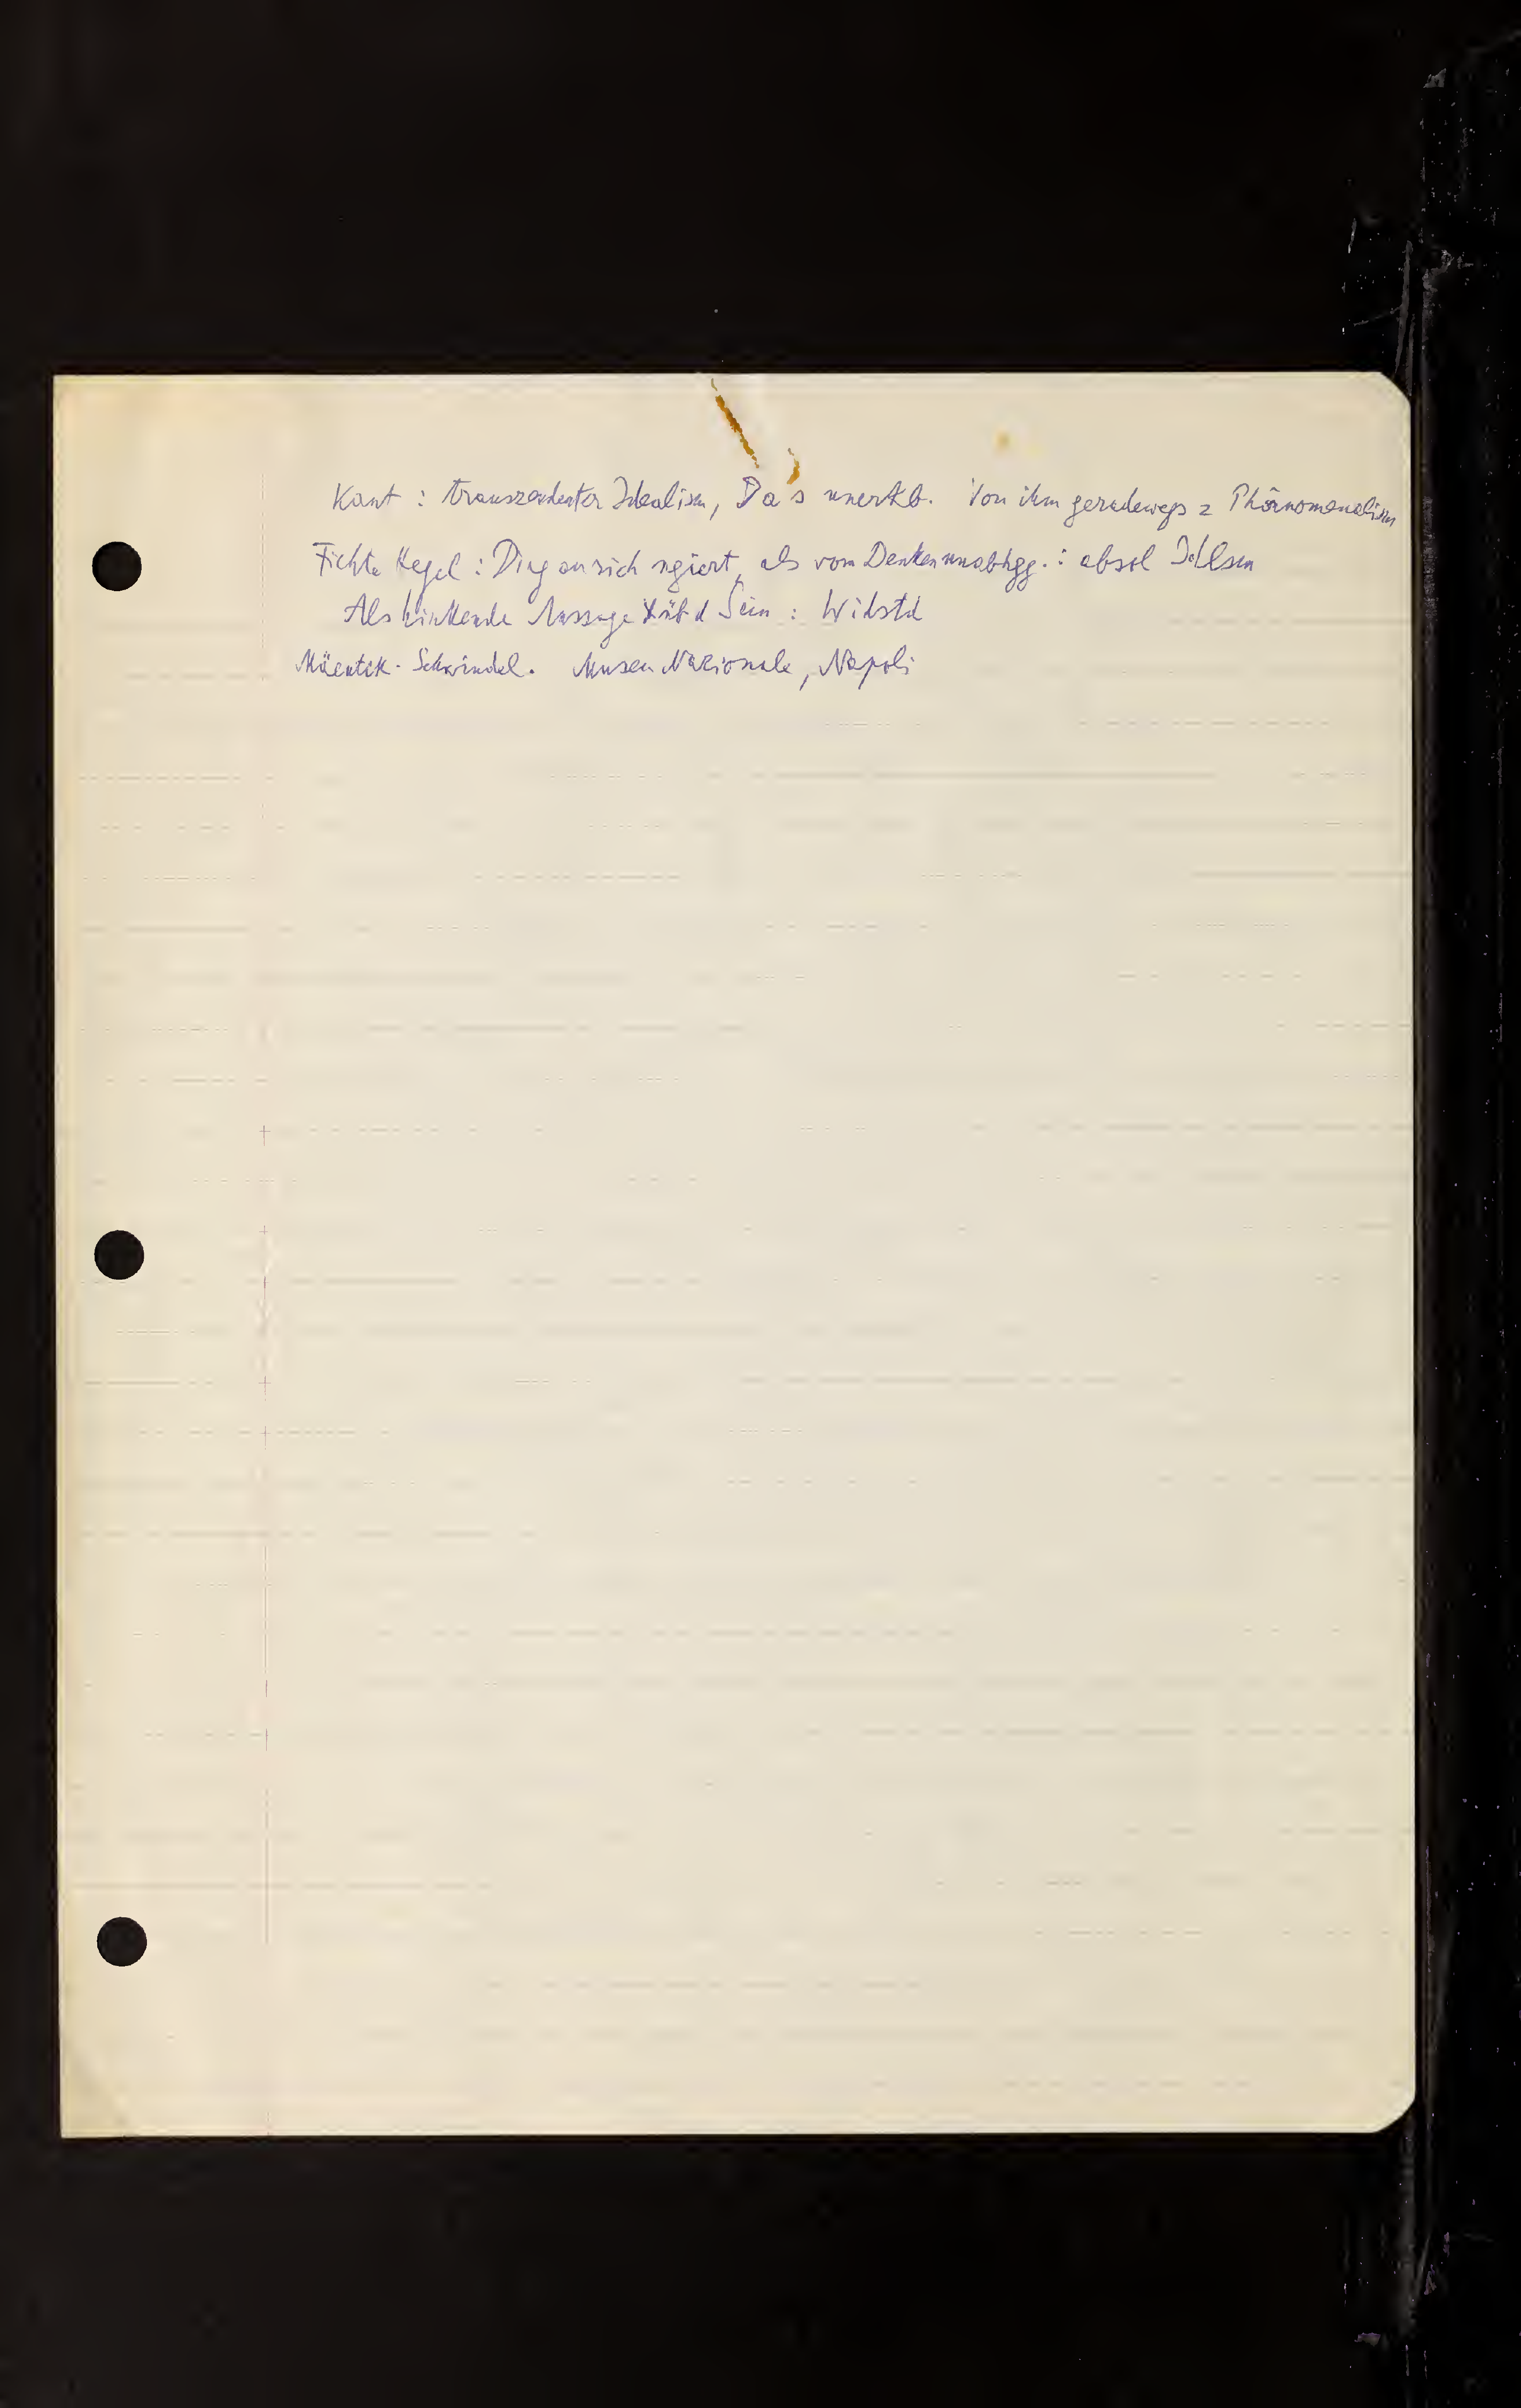 Kant : transzendenter Idealism, Da's unerkb. Von ihm geradewegs z Phänomenalism
Fichte Hegel : Ding an sich ngiert, als vom Denken unabhgg. : absol Idlsm
Als hinkende Aussage üb d Sein : Widstd
Mäeutik - Schwindel. Museu Nazionale, Napoli